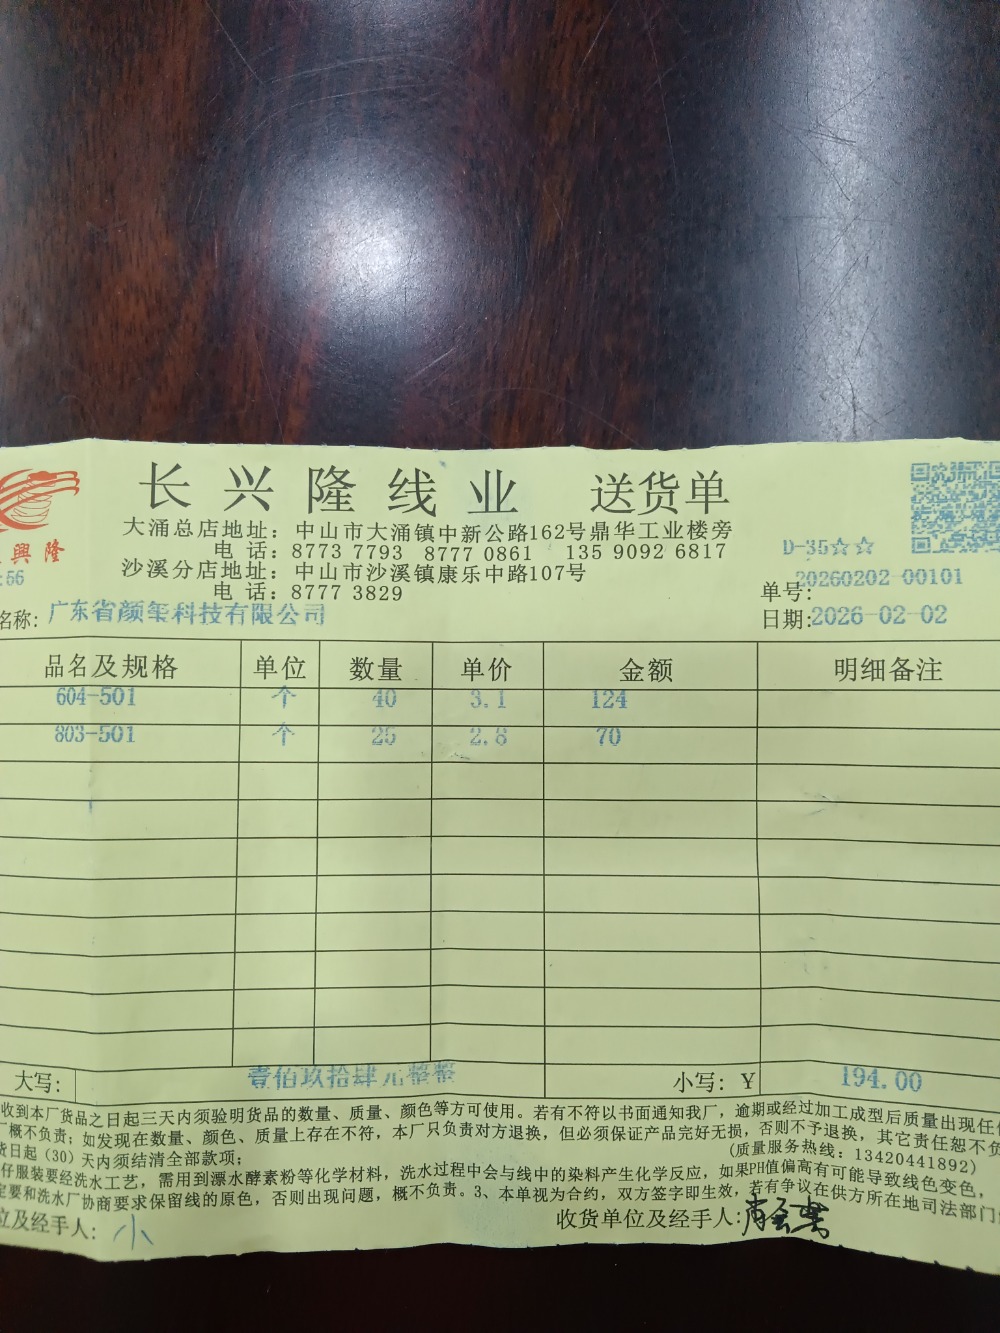 长兴隆线业 送货单
大涌总店地址：中山市大涌镇中新公路162号鼎华工业楼旁
电 话：8773 7793 8777 0861 135 9092 6817
D-35☆☆
興隆
沙溪分店地址：中山市沙溪镇康乐中路107号
:56
电 话：8777 3829
单号：20260202-00101
名称：广东省颜玺科技有限公司
日期：2026-02-02
品名及规格 单位 数量 单价 金额 明细备注
604-501 个 40 3.1 124
803-501 个 25 2.8 70
大写： 壹佰玖拾肆元整整 小写：￥ 194.00
收到本厂货品之日起三天内须验明货品的数量、质量、颜色等方可使用。若有不符以书面通知我厂，逾期或经过加工成型后质量出现任
厂概不负责；如发现在数量、颜色、质量上存在不符，本厂只负责对方退换，但必须保证产品完好无损，否则不予退换，其它责任恕不负
货日起（30）天内须结清全部款项；
(质量服务热线：13420441892)
仔服装要经洗水工艺，需用到漂水酵素粉等化学材料，洗水过程中会与线中的染料产生化学反应，如果PH值偏高有可能导致线色变色，
定要和洗水厂协商要求保留线的原色，否则出现问题，概不负责。3、本单视为合约，双方签字即生效，若有争议在供方所在地司法部门
位及经手人：小
收货单位及经手人：